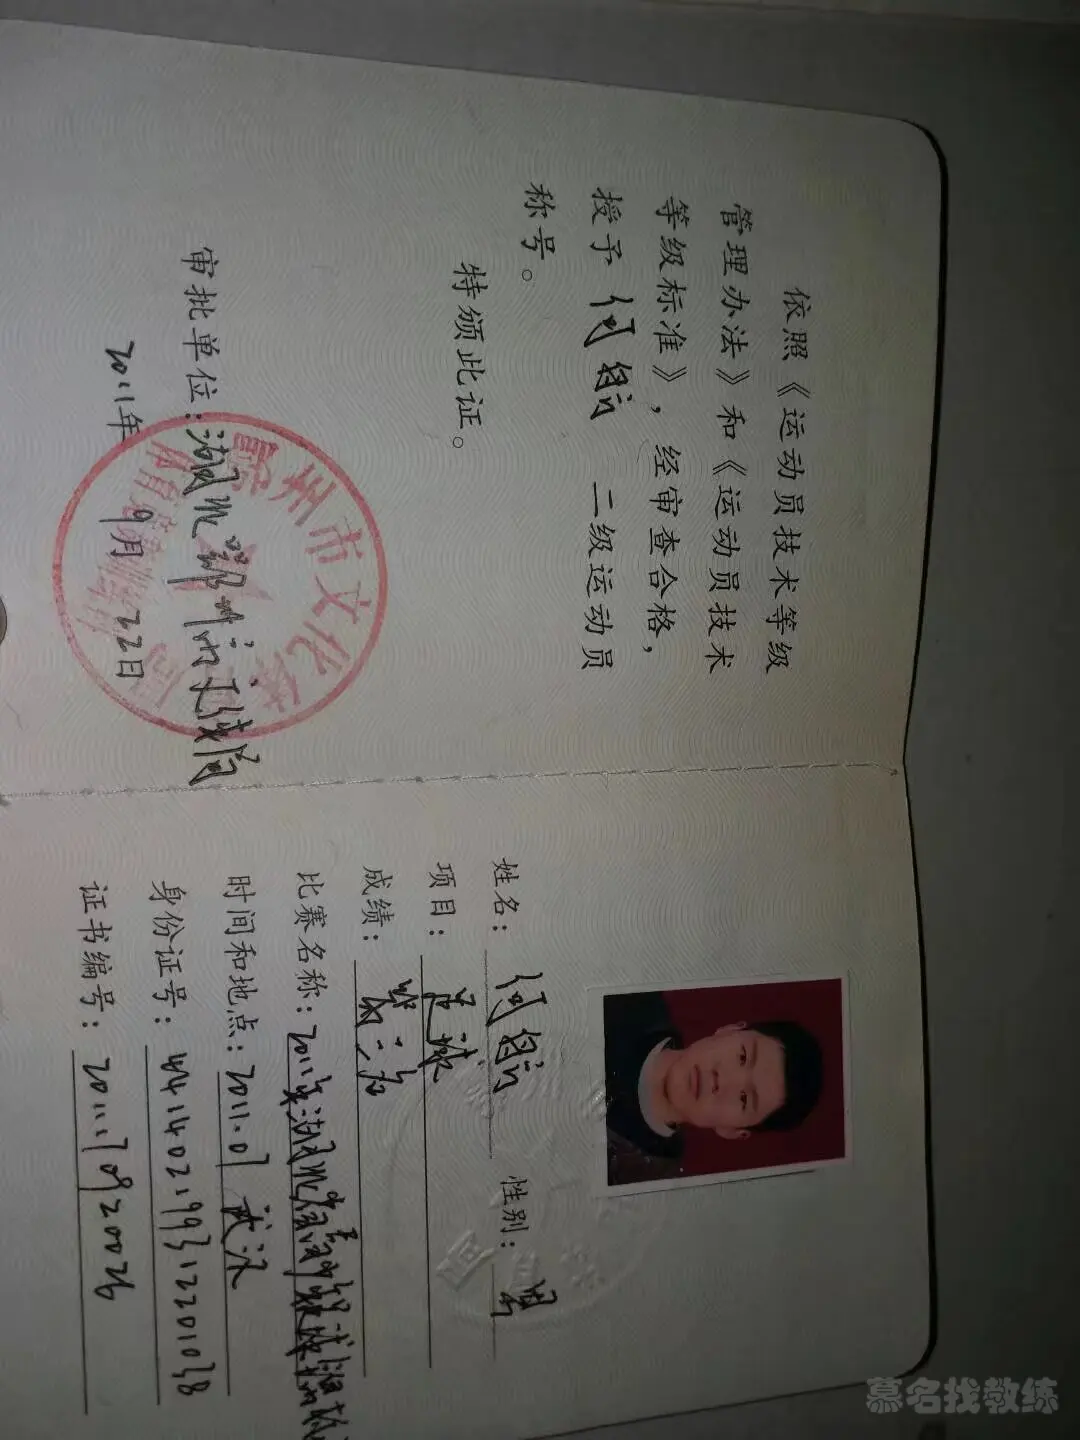 依照《运动员技术等级
管理办法》和《运动员技术
等级标准》，经审查合格，
授予 何航 二级运动员
称号。
特颁此证。
审批单位：湖北鄂州市文体局
2011年 9月 22日
鄂州市文化体
局
姓名：何航 性别：男
项目：足球
成绩：第三名
比赛名称：2011年湖北省青少年足球锦标
时间和地点：2011.07 武汉
身份证号：441402199312201038
证书编号：2011170920026
慕名找教练